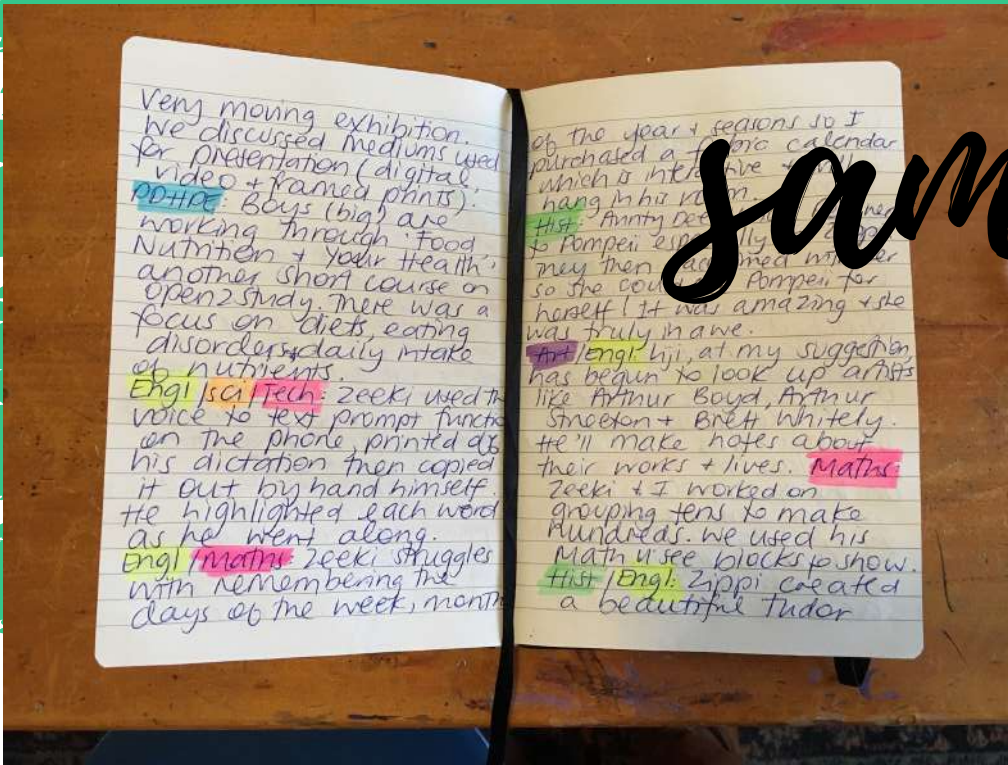 Very moving exhibition.
We discussed mediums used
for presentation (digital,
video + framed prints).
PDHPE: Boys (big) are
working through 'Food,
Nutrition + Your Health',
another short course on
Open2Study. There was a
focus on diets, eating
disorders + daily intake
of nutrients.
Engl/Sci/Tech: Zeeki used th
voice to text prompt functio
on the phone, printed off
his dictation then copied
it out by hand himself.
He highlighted each word
as he went along.
Engl/Maths: Zeeki struggles
with remembering the
days of the week, month
of the year + seasons so I
purchased a fabric calendar
which is interactive +
hang in his room.
Hist: Aunty Dee
to Pompeii
They then
so she Pompeii for
herself! It was amazing + she
was truly in awe.
Art/Engl: Liji, at my suggestion,
has begun to look up artists
like Arthur Boyd, Arthur
Streeton + Brett Whitely.
He'll make notes about
their works + lives. Maths:
Zeeki + I worked on
grouping tens to make
hundreds. We used his
Math U See blocks to show.
Hist/Engl: Zippi created
a beautiful Tudor
sam